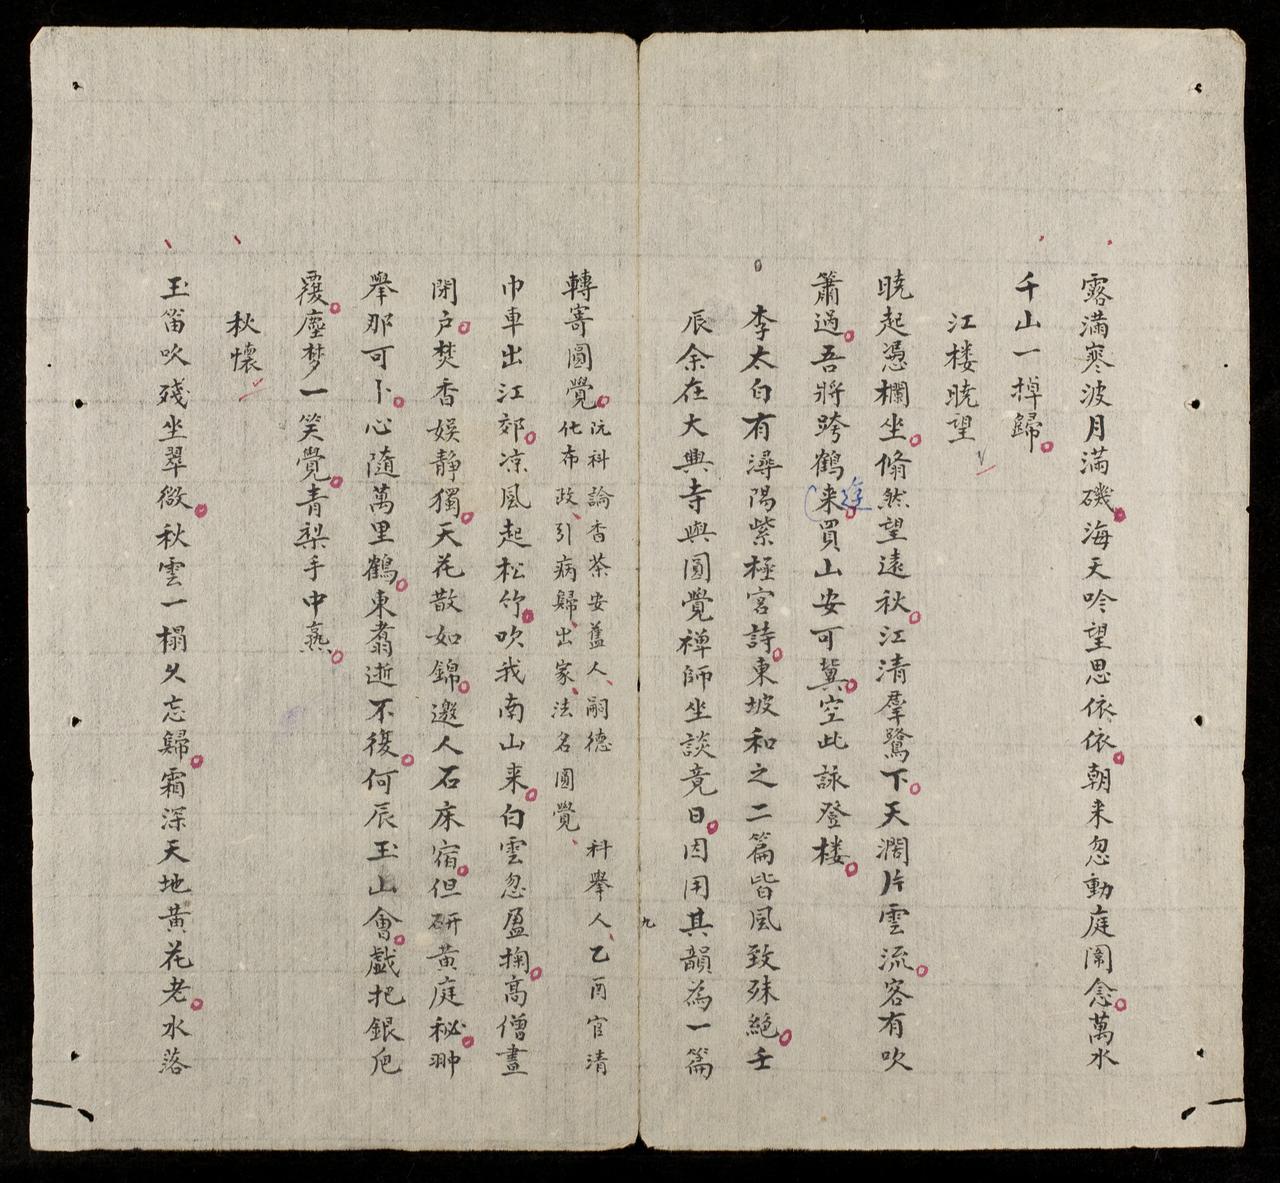 露滿寒波月滿磯海天吟望思依依朝来忽動庭闈念萬水
千山一棹歸
江楼曉望
曉起憑欄坐翛然望遠秋江清羣鷺下天濶片雲流客有吹
簫過吾將跨鶴来買山安可冀空此詠登楼
遊
李太白有潯陽紫極宮詩東坡和之二篇皆風致殊絶壬
辰余在大興寺與圓覺禅師坐談竟日因用其韻為一篇
九
轉寄圓覺
沅科論香茶安舊人嗣德
科舉人乙酉官清
化布政引病歸出家法名圓覺
巾車出江郊凉風起松竹吹我南山来白雲忽盈掬高僧晝
閉户焚香娱静獨天花散如錦邀人石床宿但研黃庭秘翀
舉那可卜心隨萬里鶴東翥逝不復何辰玉山會戯把銀卮
覆塵梦一笑覺青梨手中𤎜
秋懷
玉笛吹殘坐翠微秋雲一榻久忘歸霜深天地黃花老水落